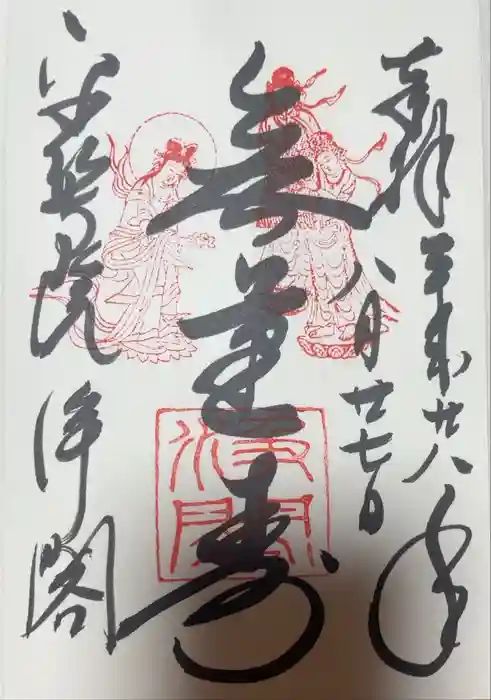 奉拝
平成廿八年
八月廿七日
無量寿
平等院
浄閣